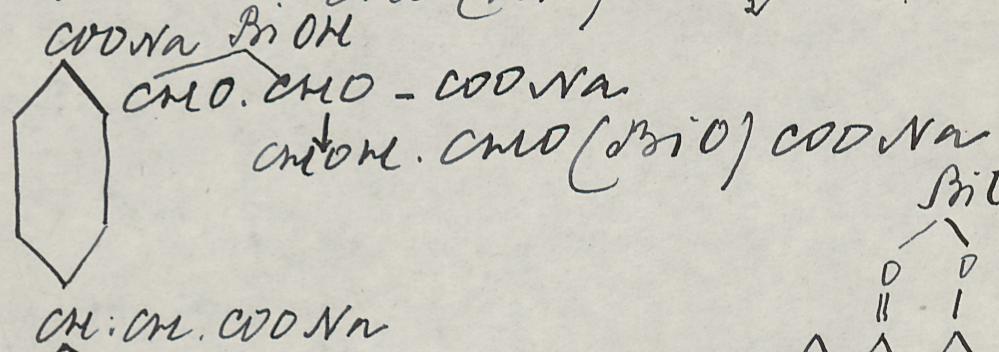 COONa BiOH
CHO.CHO - COONa
CHOH.CHO(BiO)COONa
O O
CH:CH.COONa